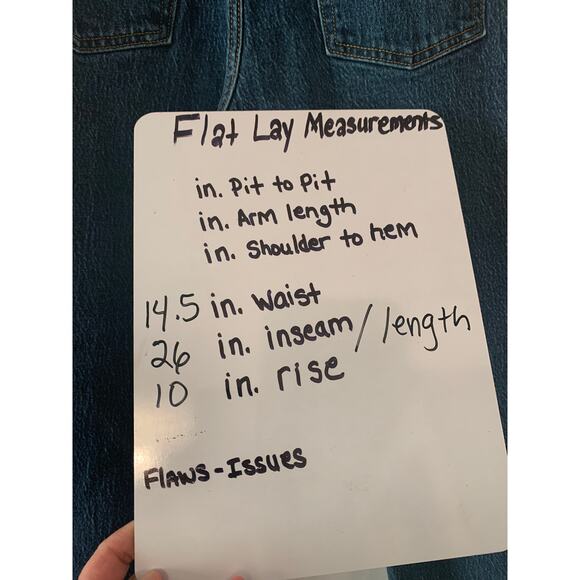 Flat Lay Measurements
in. Pit to Pit
in. Arm length
in. Shoulder to hem
14.5 in. Waist
26 in. inseam/length
10 in. rise
Flaws - Issues